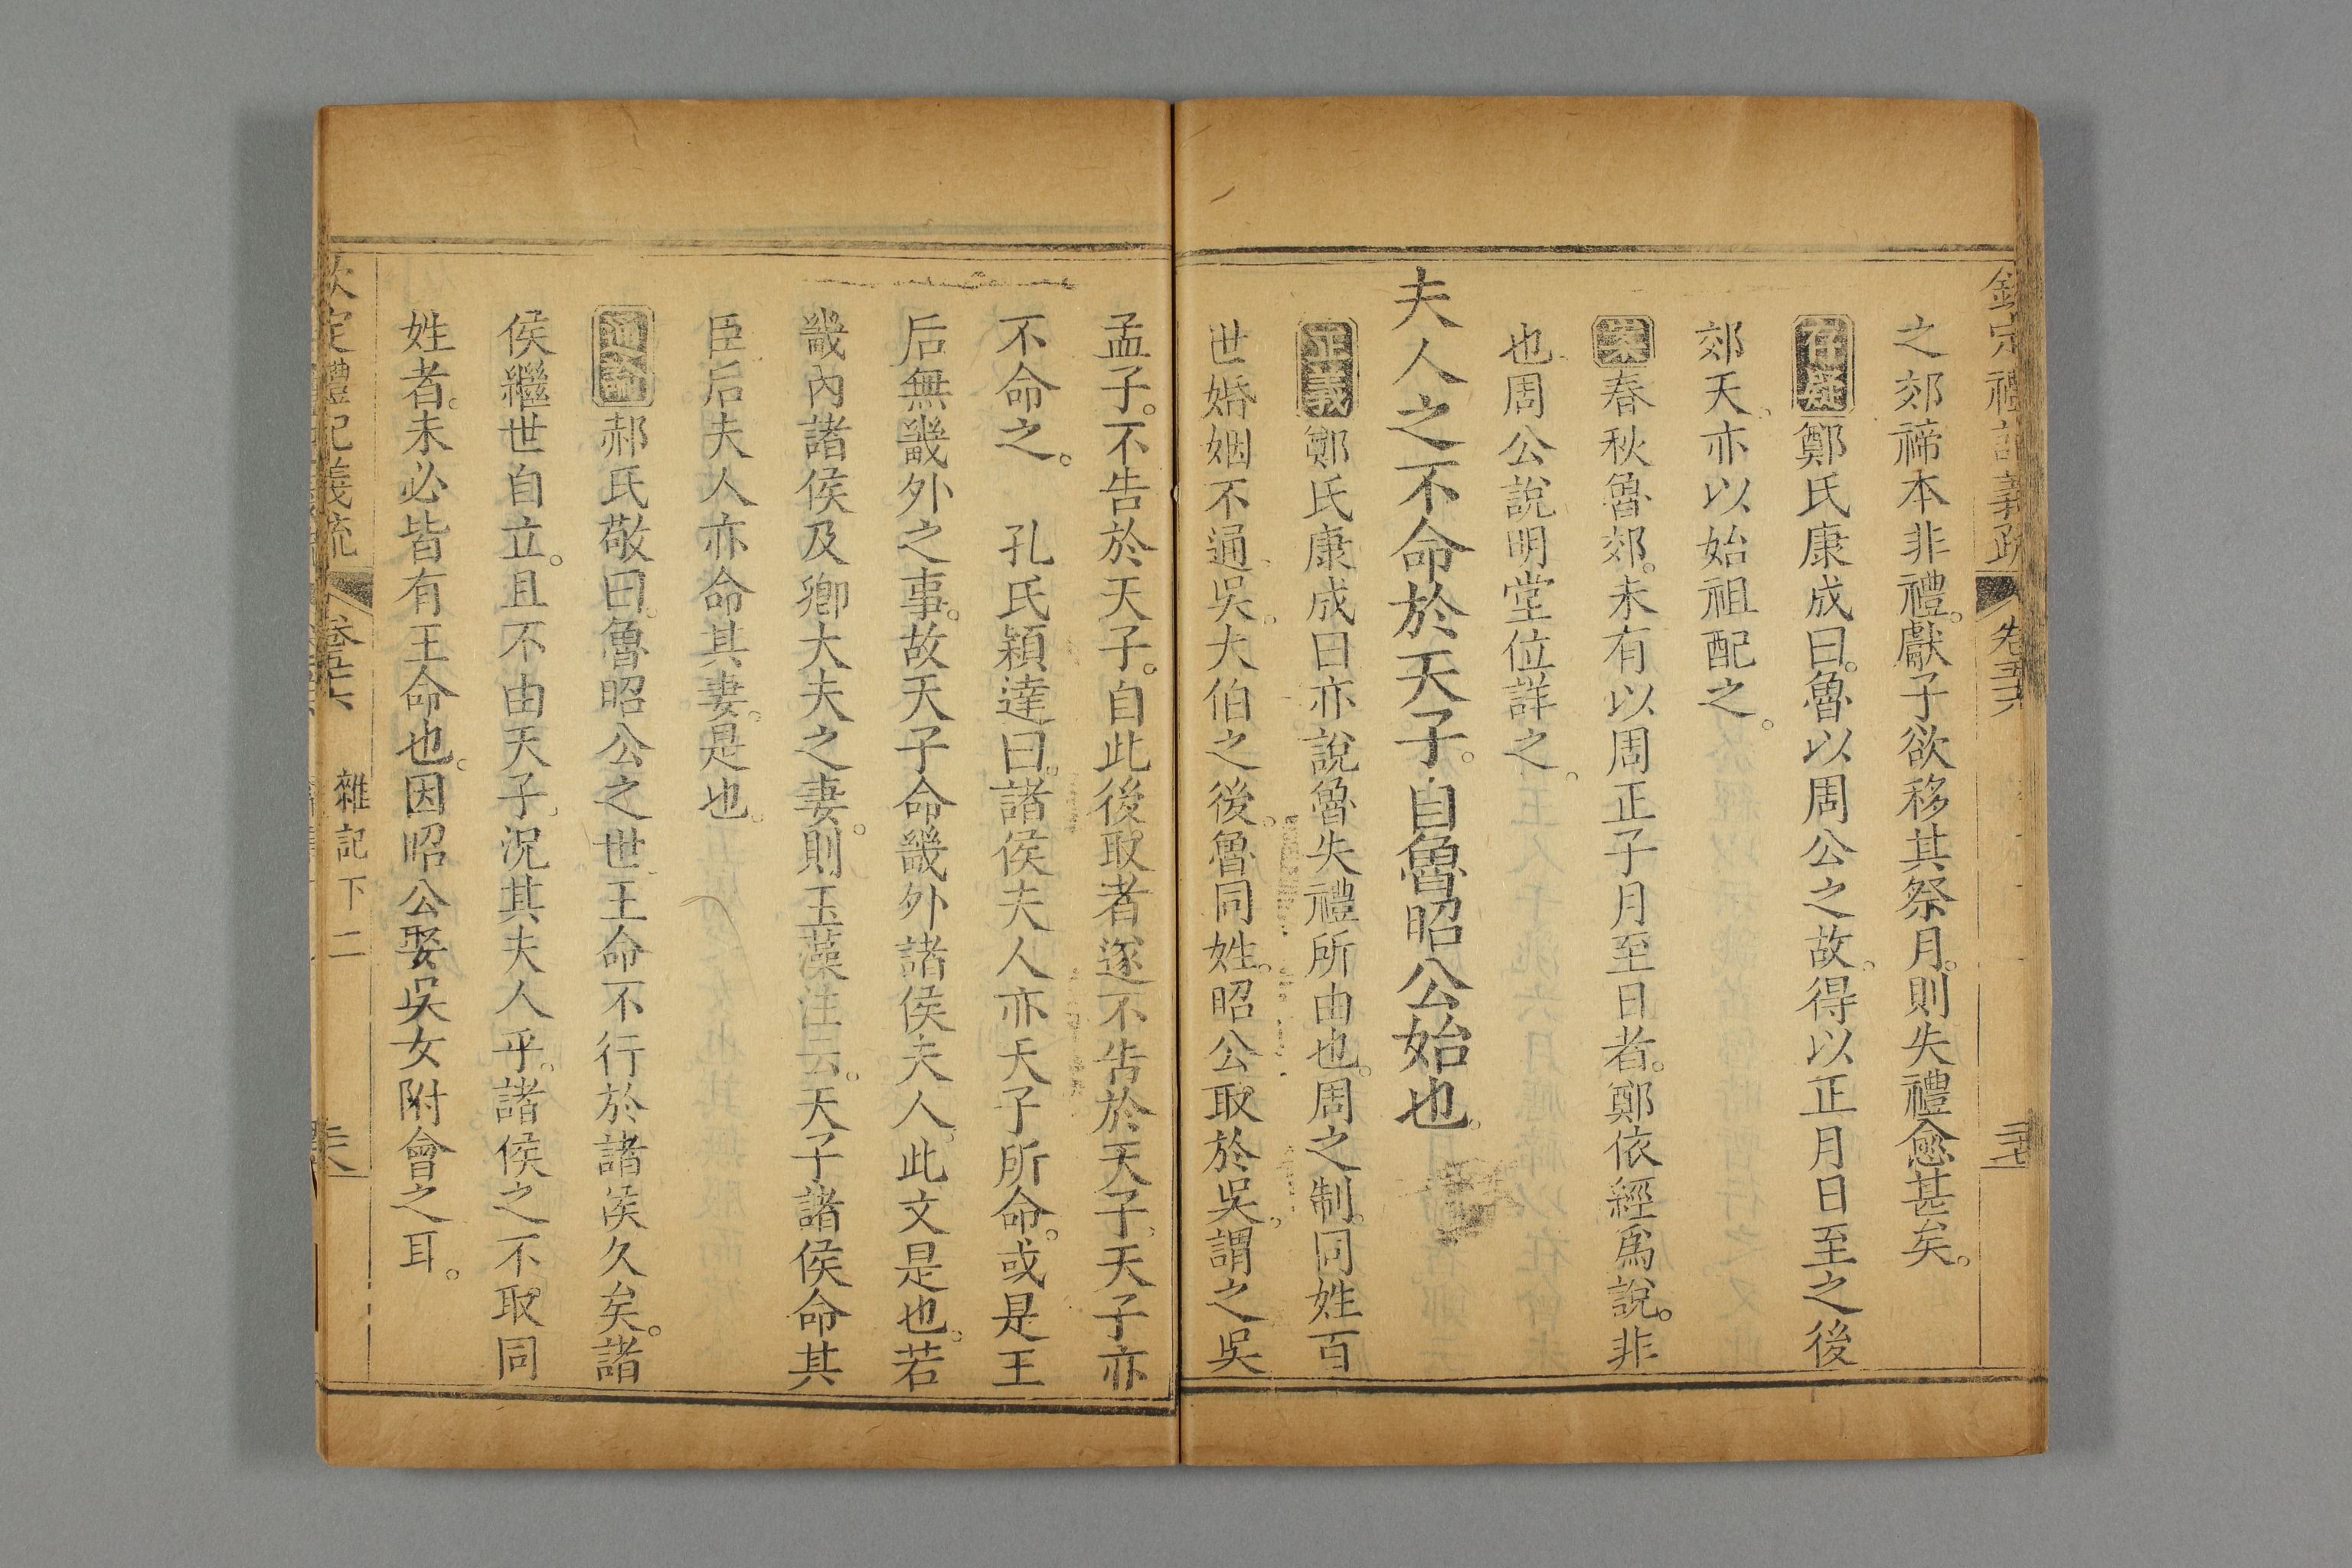 欽定禮記義疏 卷五十六
之郊禘本非禮。獻子欲移其祭月。則失禮愈甚矣。
存疑鄭氏康成曰。魯以周公之故。得以正月日至之後
郊天。亦以始祖配之。
案春秋魯郊。未有以周正子月至日者。鄭依經爲說。非
也。周公說明堂位詳之。
夫人之不命於天子。自魯昭公始也。
正義鄭氏康成曰亦說魯失禮所由也。周之制。同姓百
世婚姻不通。吳。大伯之後。魯同姓。昭公取於吳。謂之吳
孟子。不告於天子。自此後取者遂不告於天子。天子亦
不命之。 孔氏穎達曰。諸侯夫人亦天子所命。或是王
后無畿外之事。故天子命畿外諸侯夫人。此文是也。若
畿內諸侯及卿大夫之妻。則玉藻注云。天子諸侯命其
臣后夫人亦命其妻。是也。
通論郝氏敬曰。魯昭公之世王命不行於諸侯久矣。諸
侯繼世自立。且不由天子。況其夫人乎。諸侯之不取同
姓者。未必皆有王命也。因昭公娶吳女附會之耳。
欽定禮記義疏 卷五十六 雜記下二